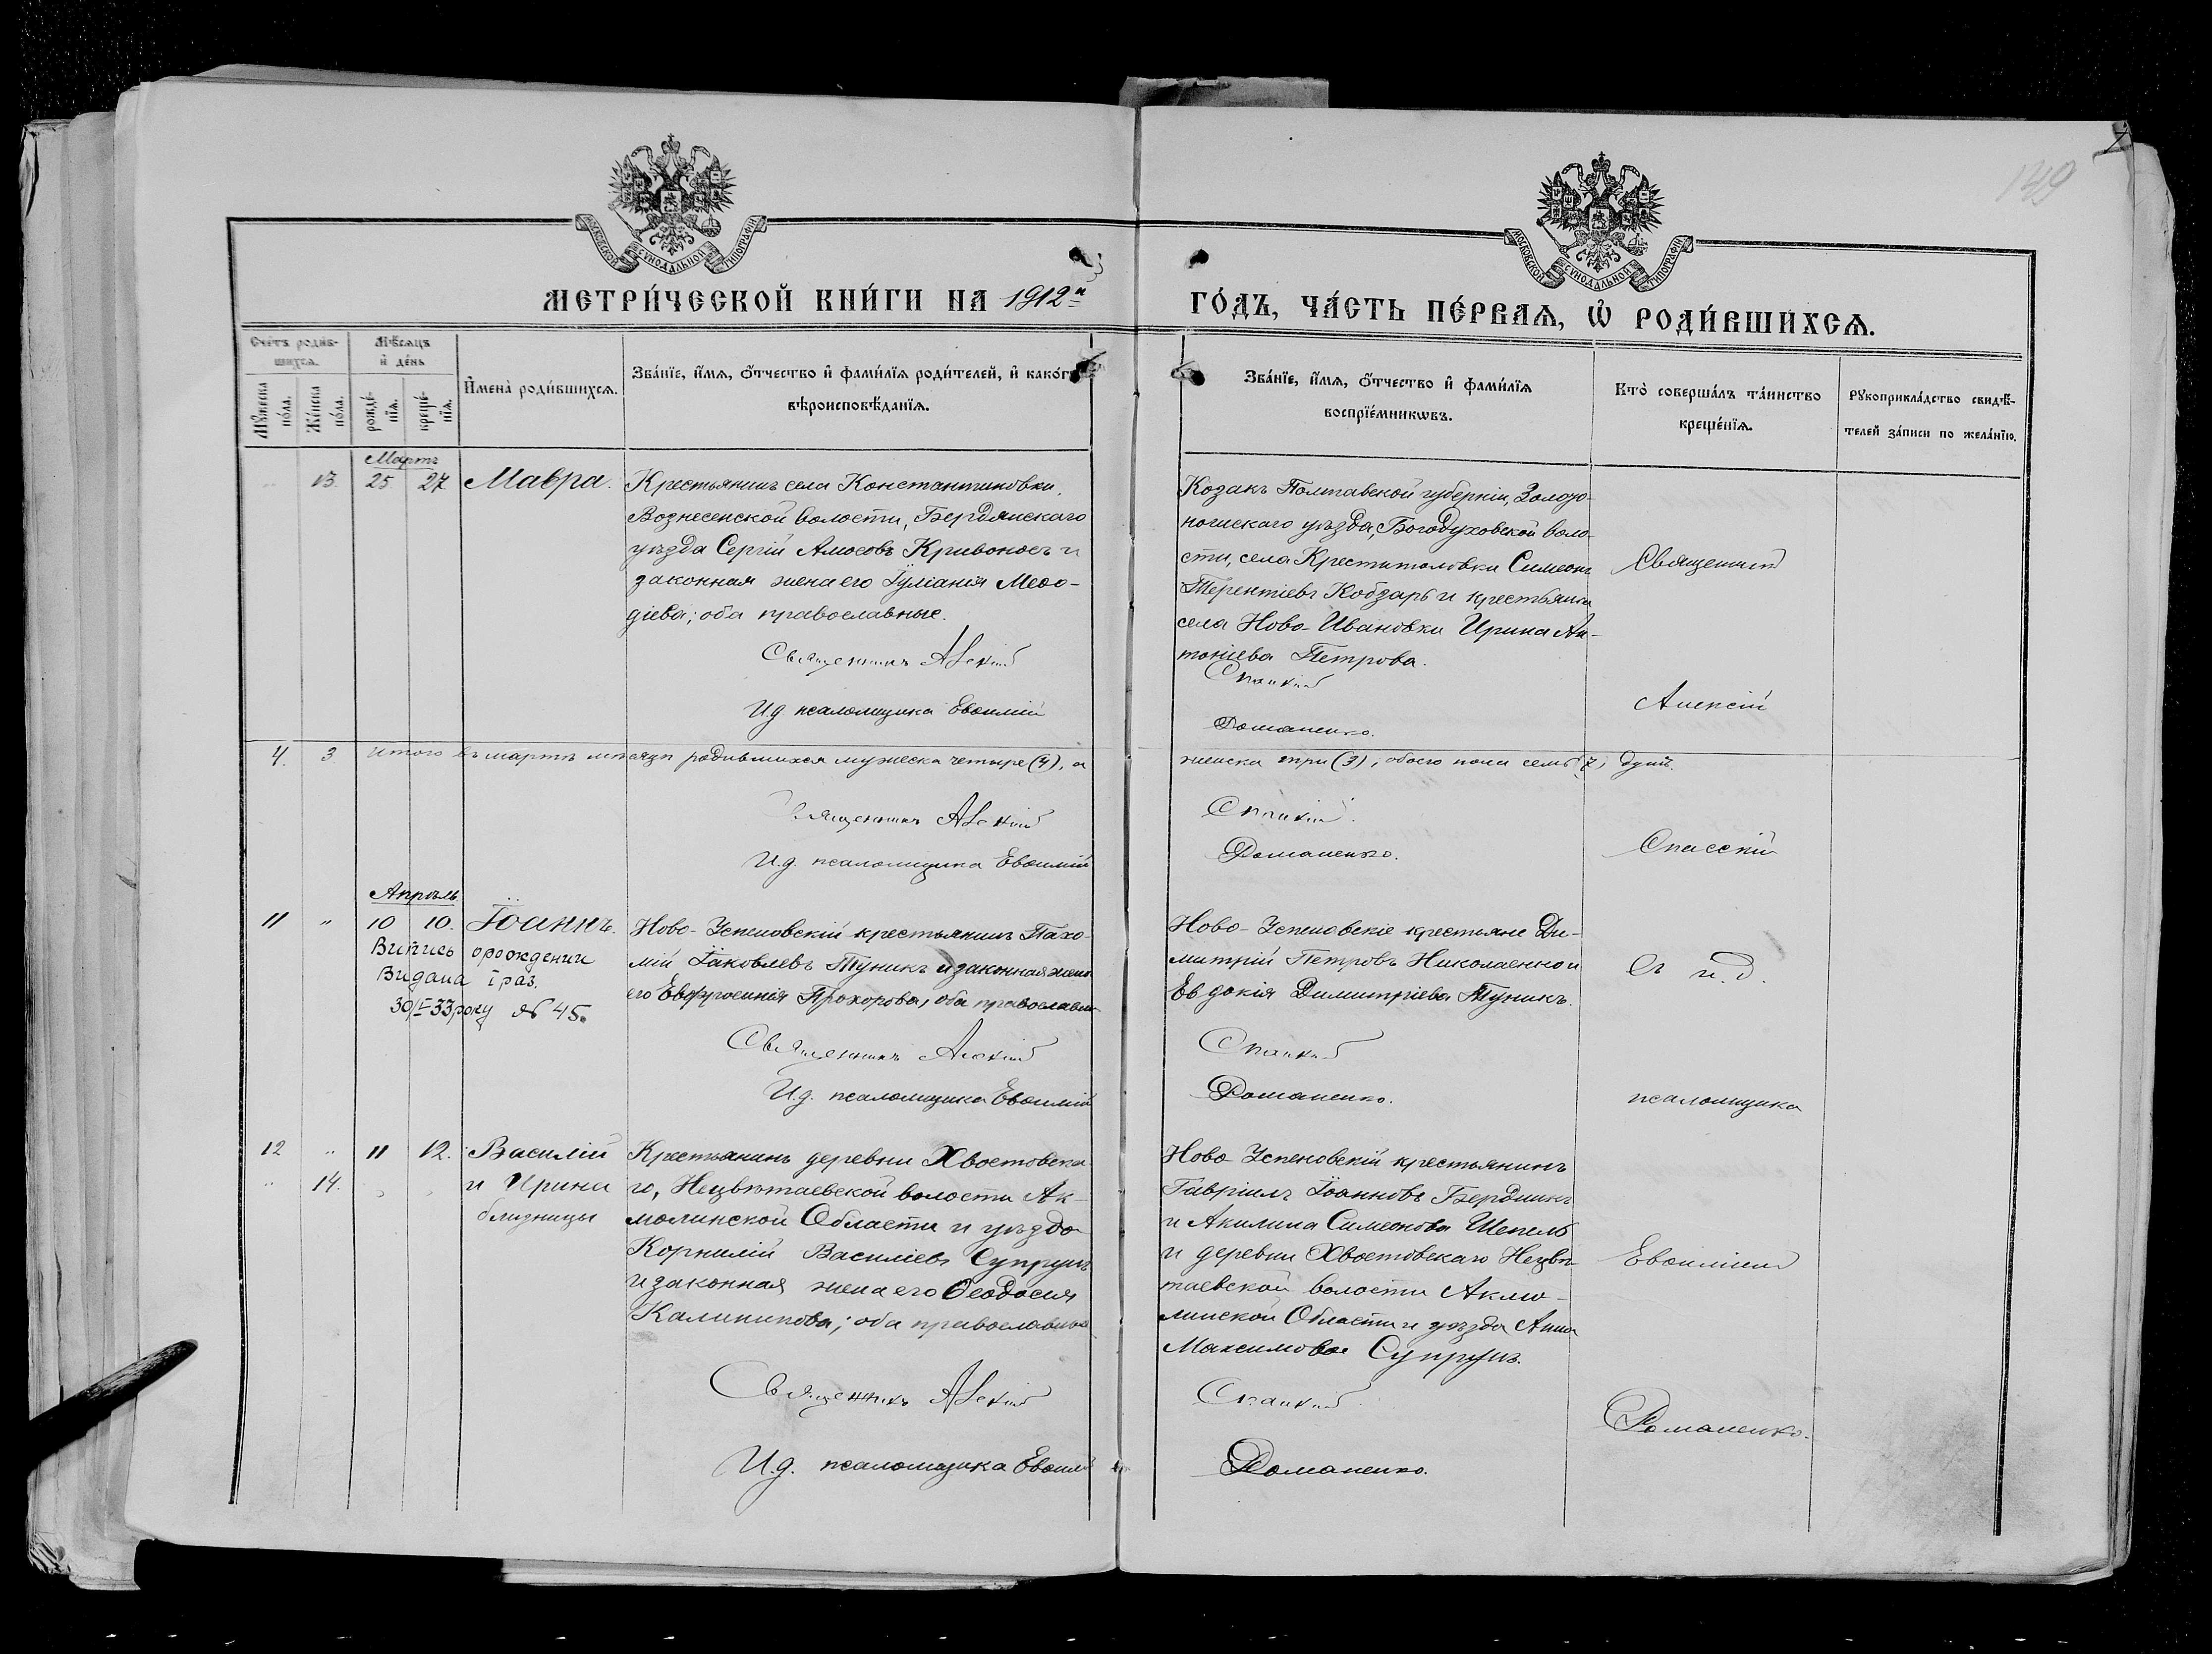 139
МОСКОВСКОЙ СѴНОДАЛЬНОЙ ТИПОГРАФІИ
МОСКОВСКОЙ СѴНОДАЛЬНОЙ ТИПОГРАФІИ
МЕТРИ́ЧЕСКОЙ КНИ́ГИ НА 1912й
ГО́ДЪ, ЧА́СТЬ ПЕ́РВАѦ, Ѡ РОДИ́ВШИХСѦ.
Сче́тъ роди́в-
шихсѧ.
Мꙋ́жеска по́ла.
Же́нска по́ла.
Мѣ́сѧцъ
и҆ де́нь
рожде́-
нїѧ.
креще́-
нїѧ.
И҆мена̀ роди́вшихсѧ.
Зва́нїе, и҆́мѧ, ѻ҆́тчество и҆ фами́лїѧ роди́телей, и҆ како́гѡ
вѣроисповѣ́данїѧ.
Зва́нїе, и҆́мѧ, ѻ҆́тчество и҆ фами́лїѧ
воспрїе́мникѡвъ.
Кто̀ соверша́лъ та́инство
креще́нїѧ.
Рꙋкоприкла́дство свидѣ́-
телей за́писи по жела́нїю.
Мартъ
13. 25 27 Мавра.
Крестьянинъ села Константиновки,
Вознесенской волости, Бердянскаго
уѣзда Сергій Амосовъ Кривоносъ и
законная жена его Іуліанія Меѳо-
діева; оба православные.
Священникъ Алексій
И.д. псаломщика Евѳимій
Козакъ Полтавской губерніи, Золото-
ношскаго уѣзда, Богодуховской воло-
сти, села Крестителовки Симеонъ
Терентіевъ Кобзарь и крестьянка
села Ново-Ивановки Ирина Ан-
тоніева Петрова.
Спасскій
Романенко.
Священникъ
Алексій
4. 3 Итого въ мартѣ мѣсяцѣ родившихся мужеска четыре (4), а
женска три (3), обоего пола семь (7) душъ.
Священникъ Алексій
И.д. псаломщика Евѳимій
Спасскій.
Романенко.
Спасскій
Апрѣль
11 " 10 10. Іоаннъ.
Випись о рождении
Видана 1 раз.
30/I-33 року № 45.
Ново-Успеновскій крестьянинъ Пахо-
мій Іаковлевъ Туникъ и законная жена
его Евфросинія Прохорова, оба православн.
Священникъ Алексій
И.д. псаломщика Евѳимій
Ново-Успеновскіе крестьяне Ди-
митрій Петровъ Николаенко и
Евдокія Димитріева Туникъ.
Спасскій
Романенко.
съ и.д.
псаломщика
12 " 11 12. Василій
" 14. и Ирина
близницы
Крестьянинъ деревни Хвостовска-
го, Нецвѣтаевской волости Ак-
молинской Области и уѣзда
Корнилій Василіевъ Супрунъ
и законная жена его Ѳеодосія
Калиникова; оба православные
Священникъ Алексій
И.д. псаломщика Евѳимій
Ново-Успеновскій крестьянинъ
Гавріилъ Іоанновъ Бердникъ
и Акилина Симеонова Шепель
и деревни Хвостовскаго Нецвѣ-
таевской волости Акмо-
линской Области и уѣзда Анна
Максимова Супрунъ.
Спасскій
Романенко.
Евѳиміемъ
Романенко.